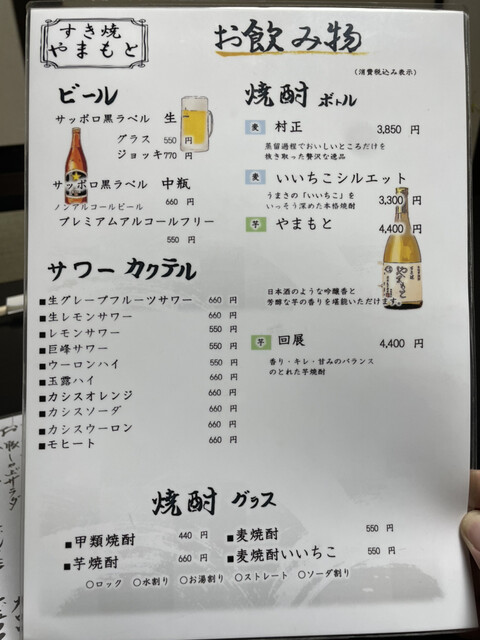 すき焼
やまもと
お飲み物
(消費税込み表示)
ビール
サッポロ黒ラベル 生
グラス 550 円
ジョッキ 770 円
サッポロ黒ラベル 中瓶
660 円
ノンアルコールビール
プレミアムアルコールフリー
550 円
サワー カクテル
■生グレープフルーツサワー 660 円
■生レモンサワー 660 円
■レモンサワー 550 円
■巨峰サワー 550 円
■ウーロンハイ 550 円
■玉露ハイ 660 円
■カシスオレンジ 660 円
■カシスソーダ 660 円
■カシスウーロン 660 円
■モヒート 660 円
焼酎 ボトル
麦 村正 3,850 円
蒸留過程でおいしいところだけを
抜き取った贅沢な逸品
麦 いいちこシルエット
うまさの「いいちこ」を
いっそう深めた本格焼酎
3,300 円
芋 やまもと 4,400 円
やまもと
日本酒のような吟醸香と
芳醇な芋の香りを堪能いただけます。
芋 回展 4,400 円
香り・キレ・甘みのバランス
のとれた芋焼酎
焼酎 グラス
■甲類焼酎 440 円
■芋焼酎 660 円
■麦焼酎 550 円
■麦焼酎いいちこ 550 円
○ロック ○水割り ○お湯割り ○ストレート ○ソーダ割り